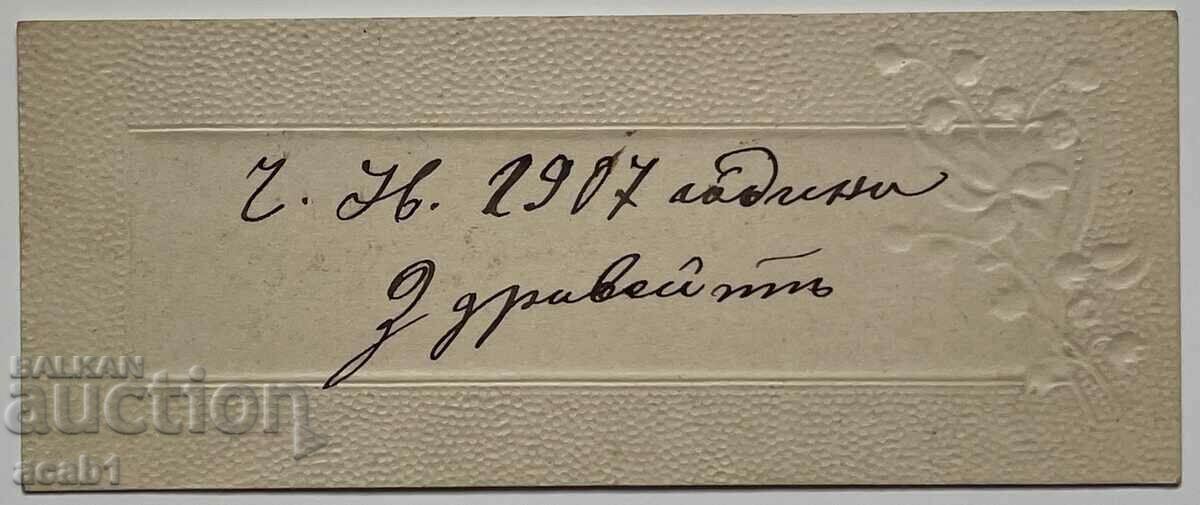 Ч. Н. 1907 година
Здравейть
BALKAN
auction
acab1